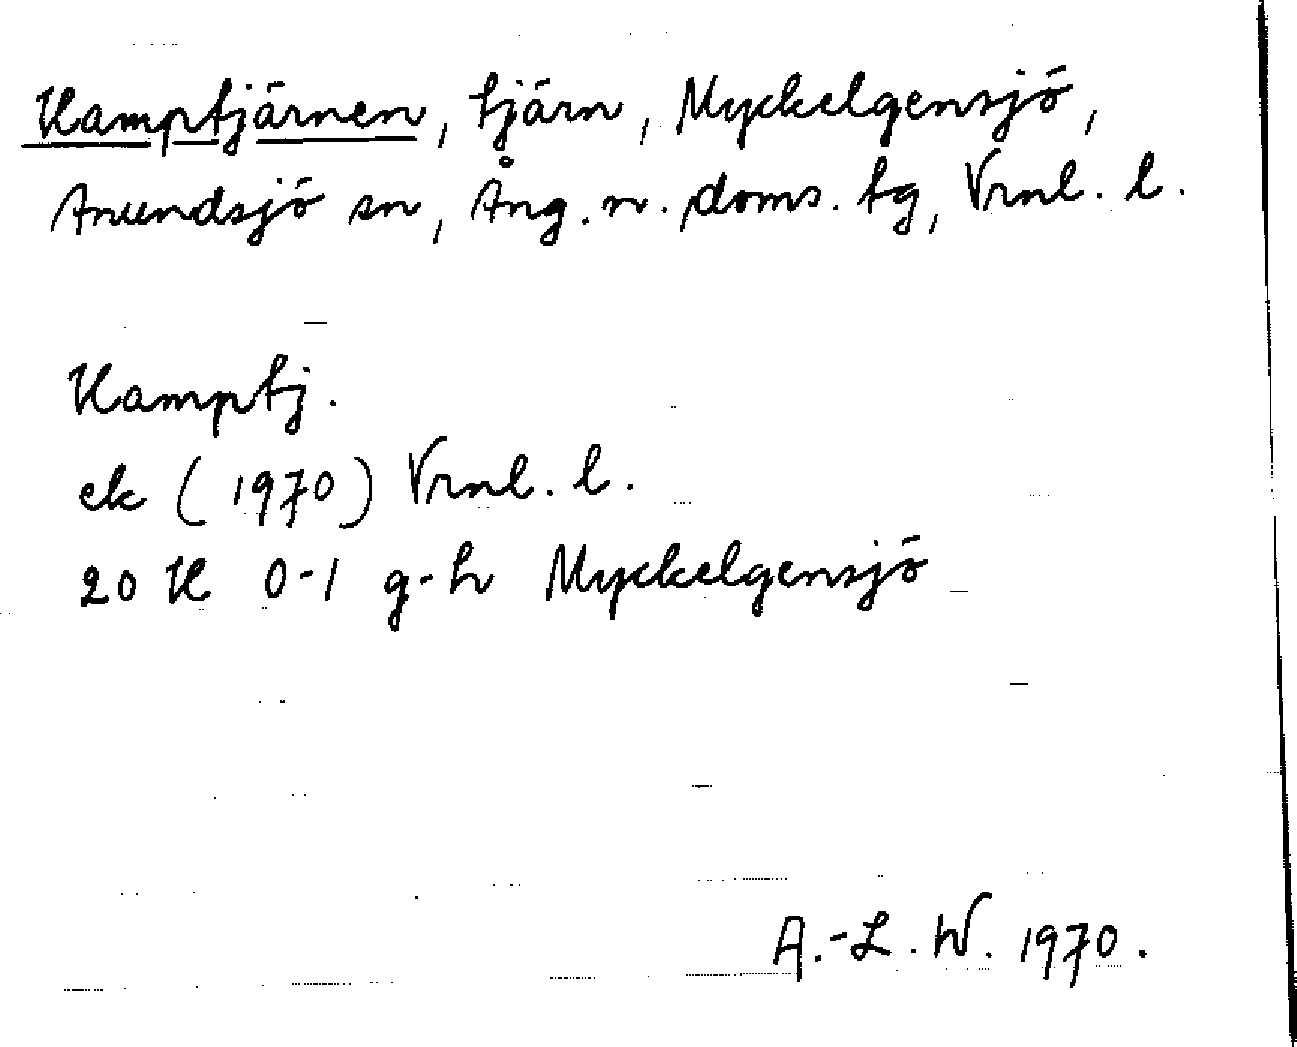 Kamptjärnen, tjärn, Myckelgensjö,
Anundsjö sn, Ång. n. doms. tg, Vrnl. l.
Kamptj.
ek (1970) Vrnl. l.
20 K 0-1 g-h Myckelgensjö
A.-L. W. 1970.